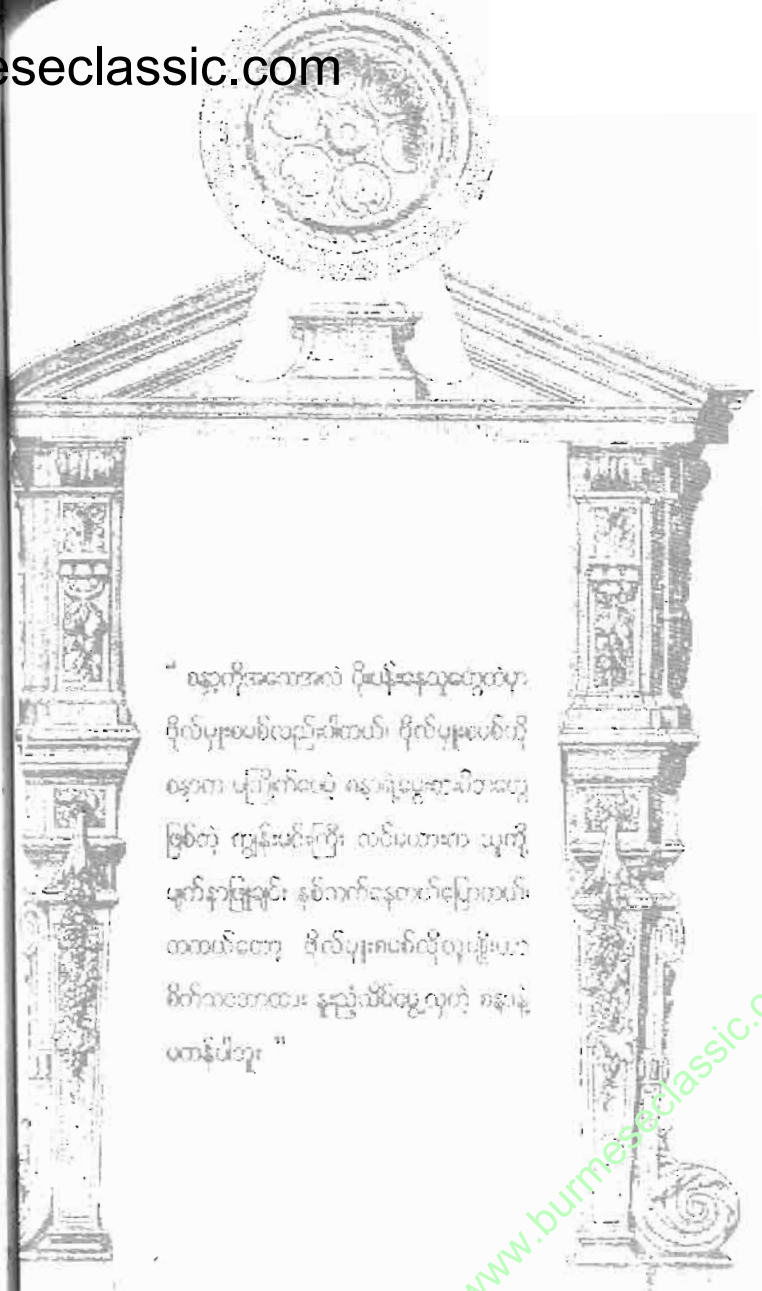 eseclassic.com
" စန္ဒာကိုအသေအလဲ ပိုးပန်းနေသူတွေထဲမှာ
ဗိုလ်မှူးစပစ်လည်းပါတယ်၊ ဗိုလ်မှူးစပစ်ကို
စန္ဒာက မကြိုက်ပေမဲ့ စန္ဒာရဲ့မွေးစားမိဘတွေ
ဖြစ်တဲ့ ကျွန်းမင်းကြီး လင်မယားက သူ့ကို
မျက်နှာဖြူချင်း နှစ်သက်နေတယ်ပြောတယ်၊
တကယ်တော့ ဗိုလ်မှူးစပစ်လိုလူမျိုးဟာ
စိတ်သဘောထား နူးညံ့သိမ်မွေ့လှတဲ့ စန္ဒာနဲ့
မတန်ပါဘူး "
www.burmeseclassic.c